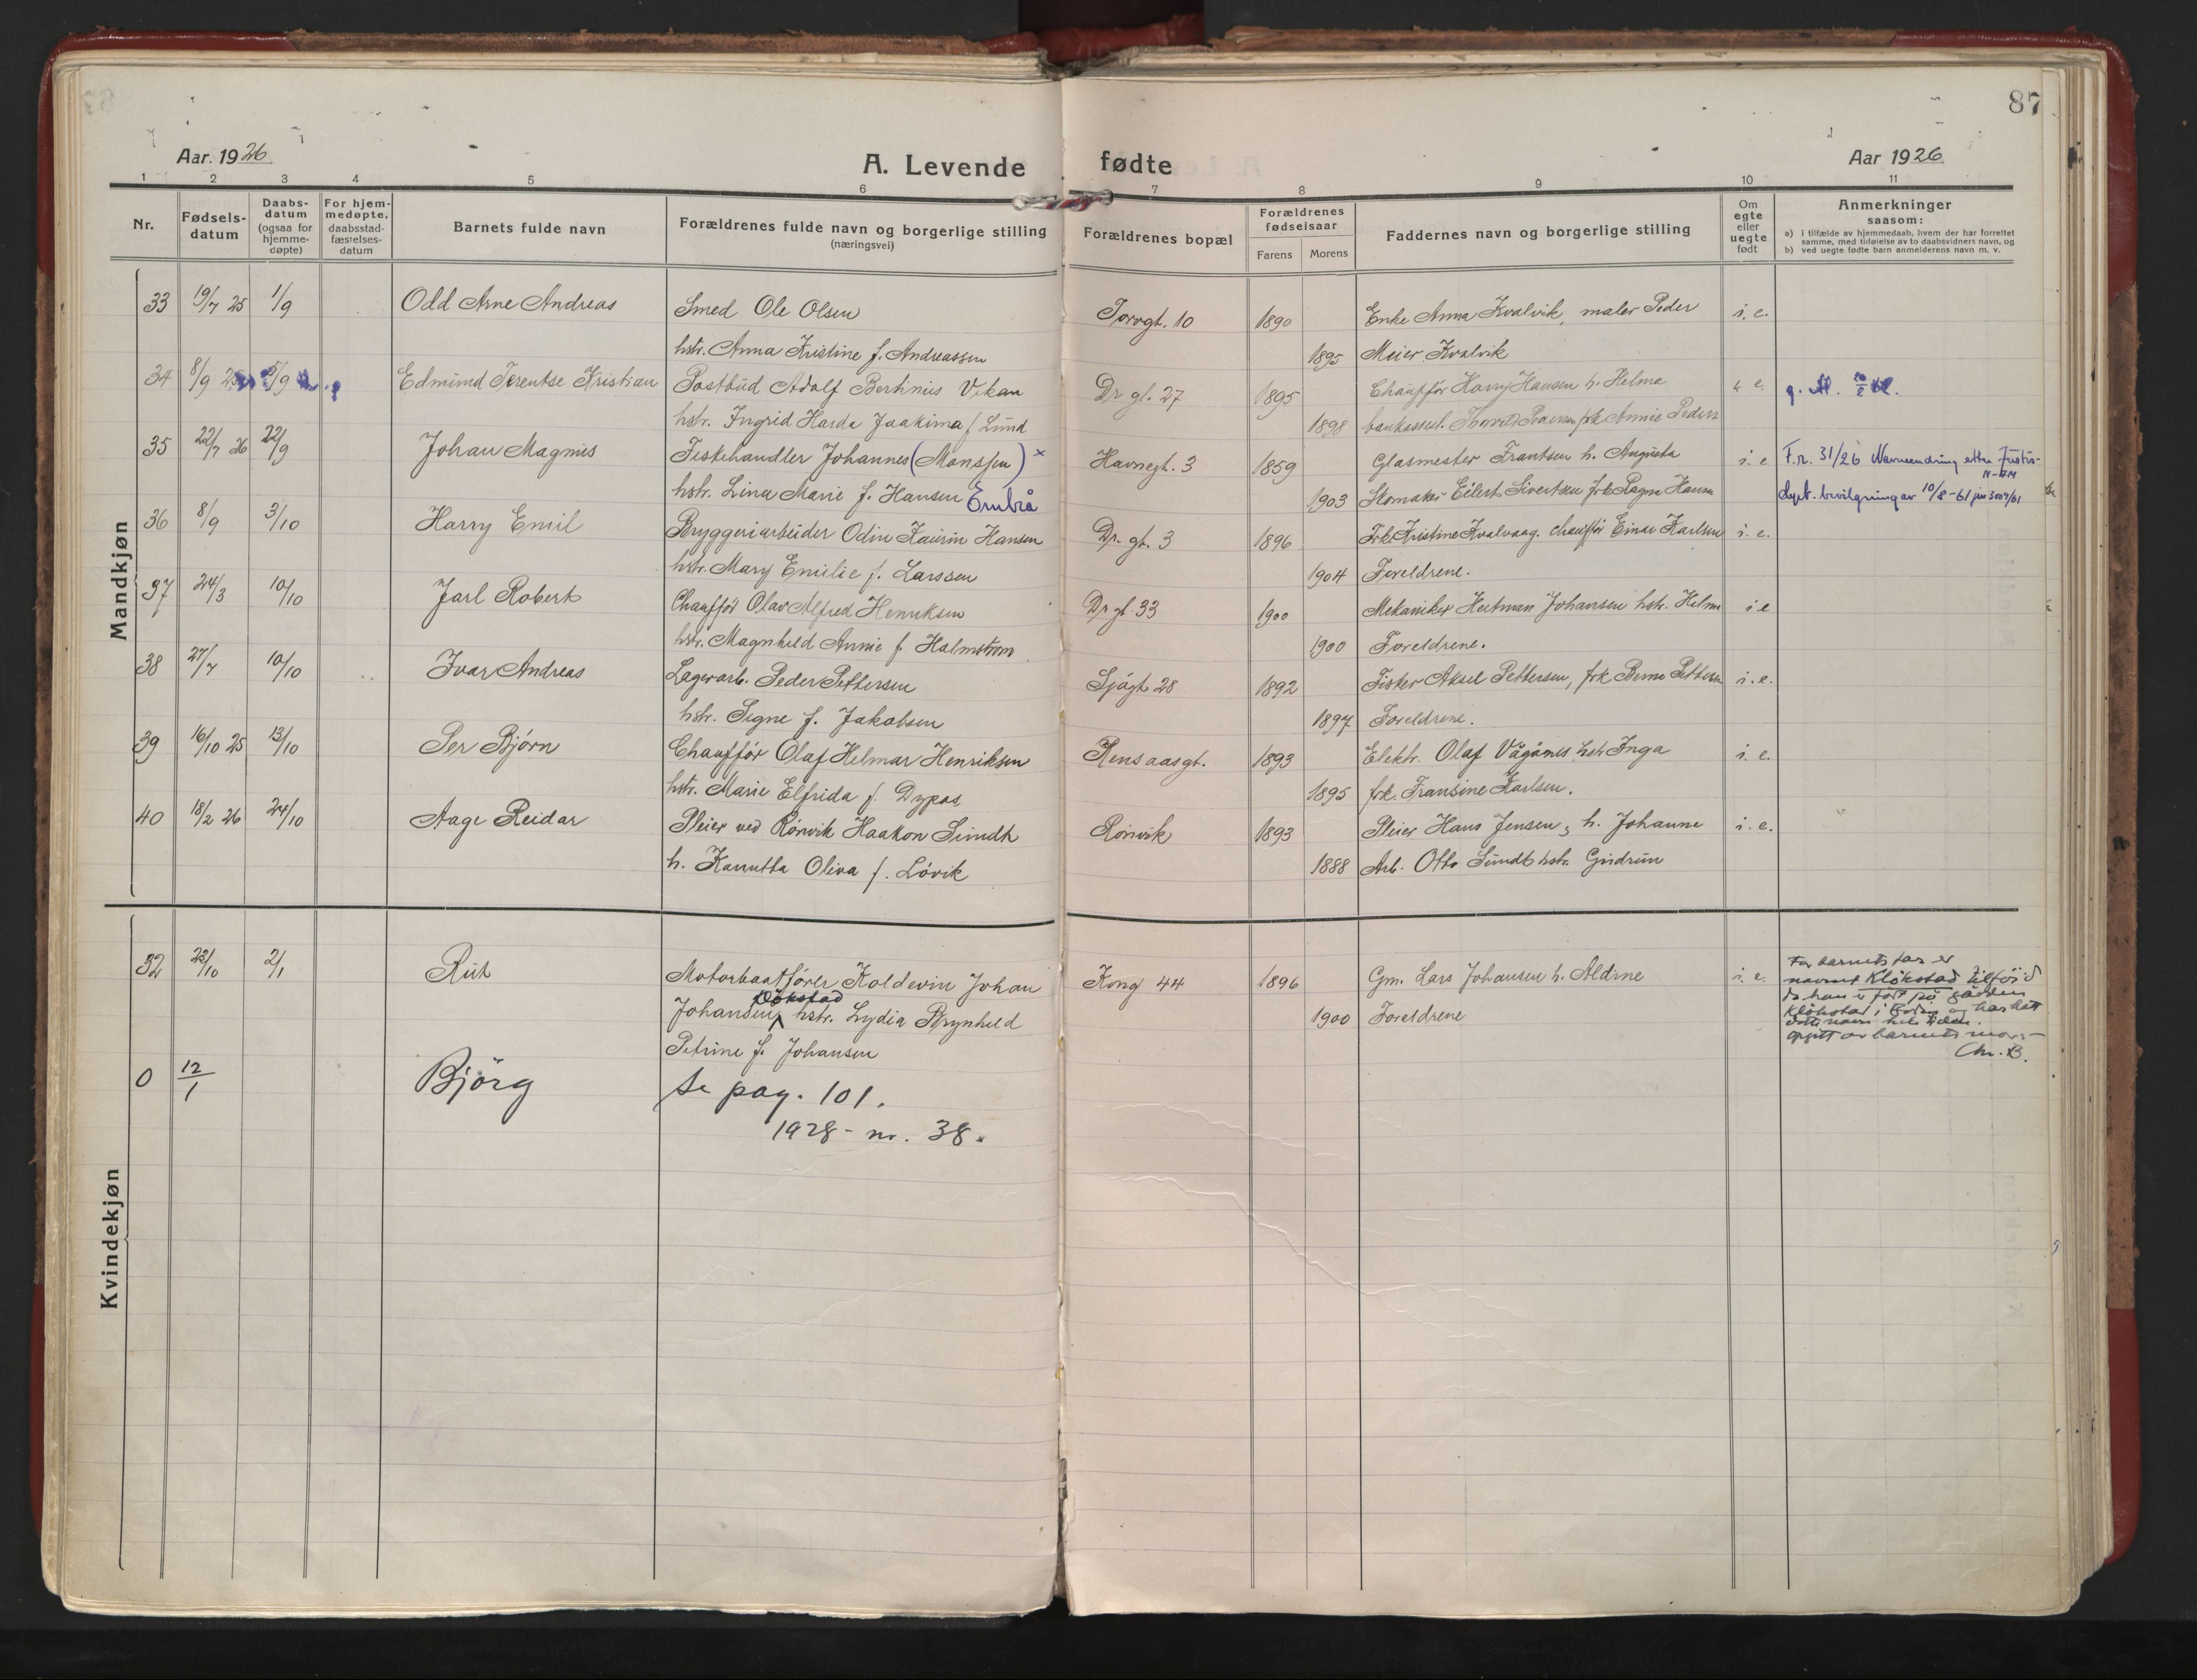 87
Aar. 1926
A. Levende fødte
Aar 1926
1 2 3 4 5 6 7 8 9 10 11
Nr.
Fødsels-
datum
Daabs-
datum
(ogsaa for
hjemme-
døpte)
For hjem-
medøpte,
daabsstad-
fæstelses-
datum
Barnets fulde navn
Forældrenes fulde navn og borgerlige stilling
(næringsvei)
Forældrenes bopæl
Forældrenes
fødselsaar
Farens Morens
Faddernes navn og borgerlige stilling
Om
egte
eller
uegte
født
Anmerkninger
saasom:
a) i tilfælde av hjemmedaab, hvem der har forrettet
samme, med tilføielse av to daabsvidners navn, og
b) ved uegte fødte barn anmelderens navn m. v.
Mandkjøn
33 19/7 25 1/9 Odd Arne Andreas Smed Ole Olsen Torvgt. 10 1890 Enke Anna Kvalvik, maler Peder i. e.
hstr. Anna Kristine f. Andreassen 1895 Meier Kvalvik
34 8/9 5/9 Edmund Terentse Kristian Postbud Adolf Berthnius Vikan Dr gt. 27 1895 Chauffør Harry Hansen h. Helma e.
hstr. Ingrid Harda Joakima f. Lund 1898 frk Annie
35 22/7 26 22/9 Johan Magnus Fiskehandler Johannes (Monssen) x Havnegt. 3 1859 Glasmester Frantsen h. Augusta i. e F.r. 31/26 Navneendring etter Justis-
hstr. Lina Marie f. Hansen 1903 Skomaker Eilert Sivertsen frk Ragna Hansen dept. bevilgning av 10/8-61 jnr 3009/61
36 8/9 3/10 Harry Emil Bryggeriarbeider Odin Kaurin Hansen Dr. gt. 3 1896 Frk. Kristine Kvalvaag. Chauffør Einar Karlsen i. e.
hstr. Mary Emilie f. Larssen 1904 Foreldrene.
37 24/3 10/10 Jarl Robert Chauffør Olav Alfred Henriksen Dr gt 33 1900 Mekaniker Johansen hstr. Helma i e
hstr. Magnhild Annie f. Halmstrøm 1900 Foreldrene.
38 27/7 10/10 Ivar Andreas Lagerarb. Peder Pettersen Sjøgt 28 1892 Fisker Aksel Pettersen, frk i. e.
hstr. Signe f. Jakobsen 1897 Foreldrene.
39 16/10 25 13/10 Per Bjørn Chauffør Olaf Helmar Henriksen Rensaasgt. 1893 Elektr. Olaf Vågånes hstr Inga i. e.
hstr. Marie Elfrida f. Dypås 1895 frk. Fransine Karlsen.
40 18/2 26 24/10 Aage Reidar Pleier ved Rønvik Haakon Sundt Rønvik 1893 Pleier Hans Jensen, h. Johanne i. e.
h. Kanutta Oliva f. Løvik 1888 Arb. Otto Sundt hstr. Gudrun
Kvindekjøn
32 23/10 2/1 Rut Motorbaatfører Koldevin Johan Kong 44 1896 Gm. Lars Johansen h. Aldine i. e. For barnets far er
navnet Kløkstad tilføid
Johansen, Kløkstad hstr. Lydia Brynhild 1900 Foreldrene da han er født på gården
Kløkstad i Bodin og har hatt
dette navn hele tiden.
Petrine f. Johansen opgitt av barnets mor.-
Chr. B.
0 12/1 Bjørg Se pag. 101.
1928 - nr. 38.